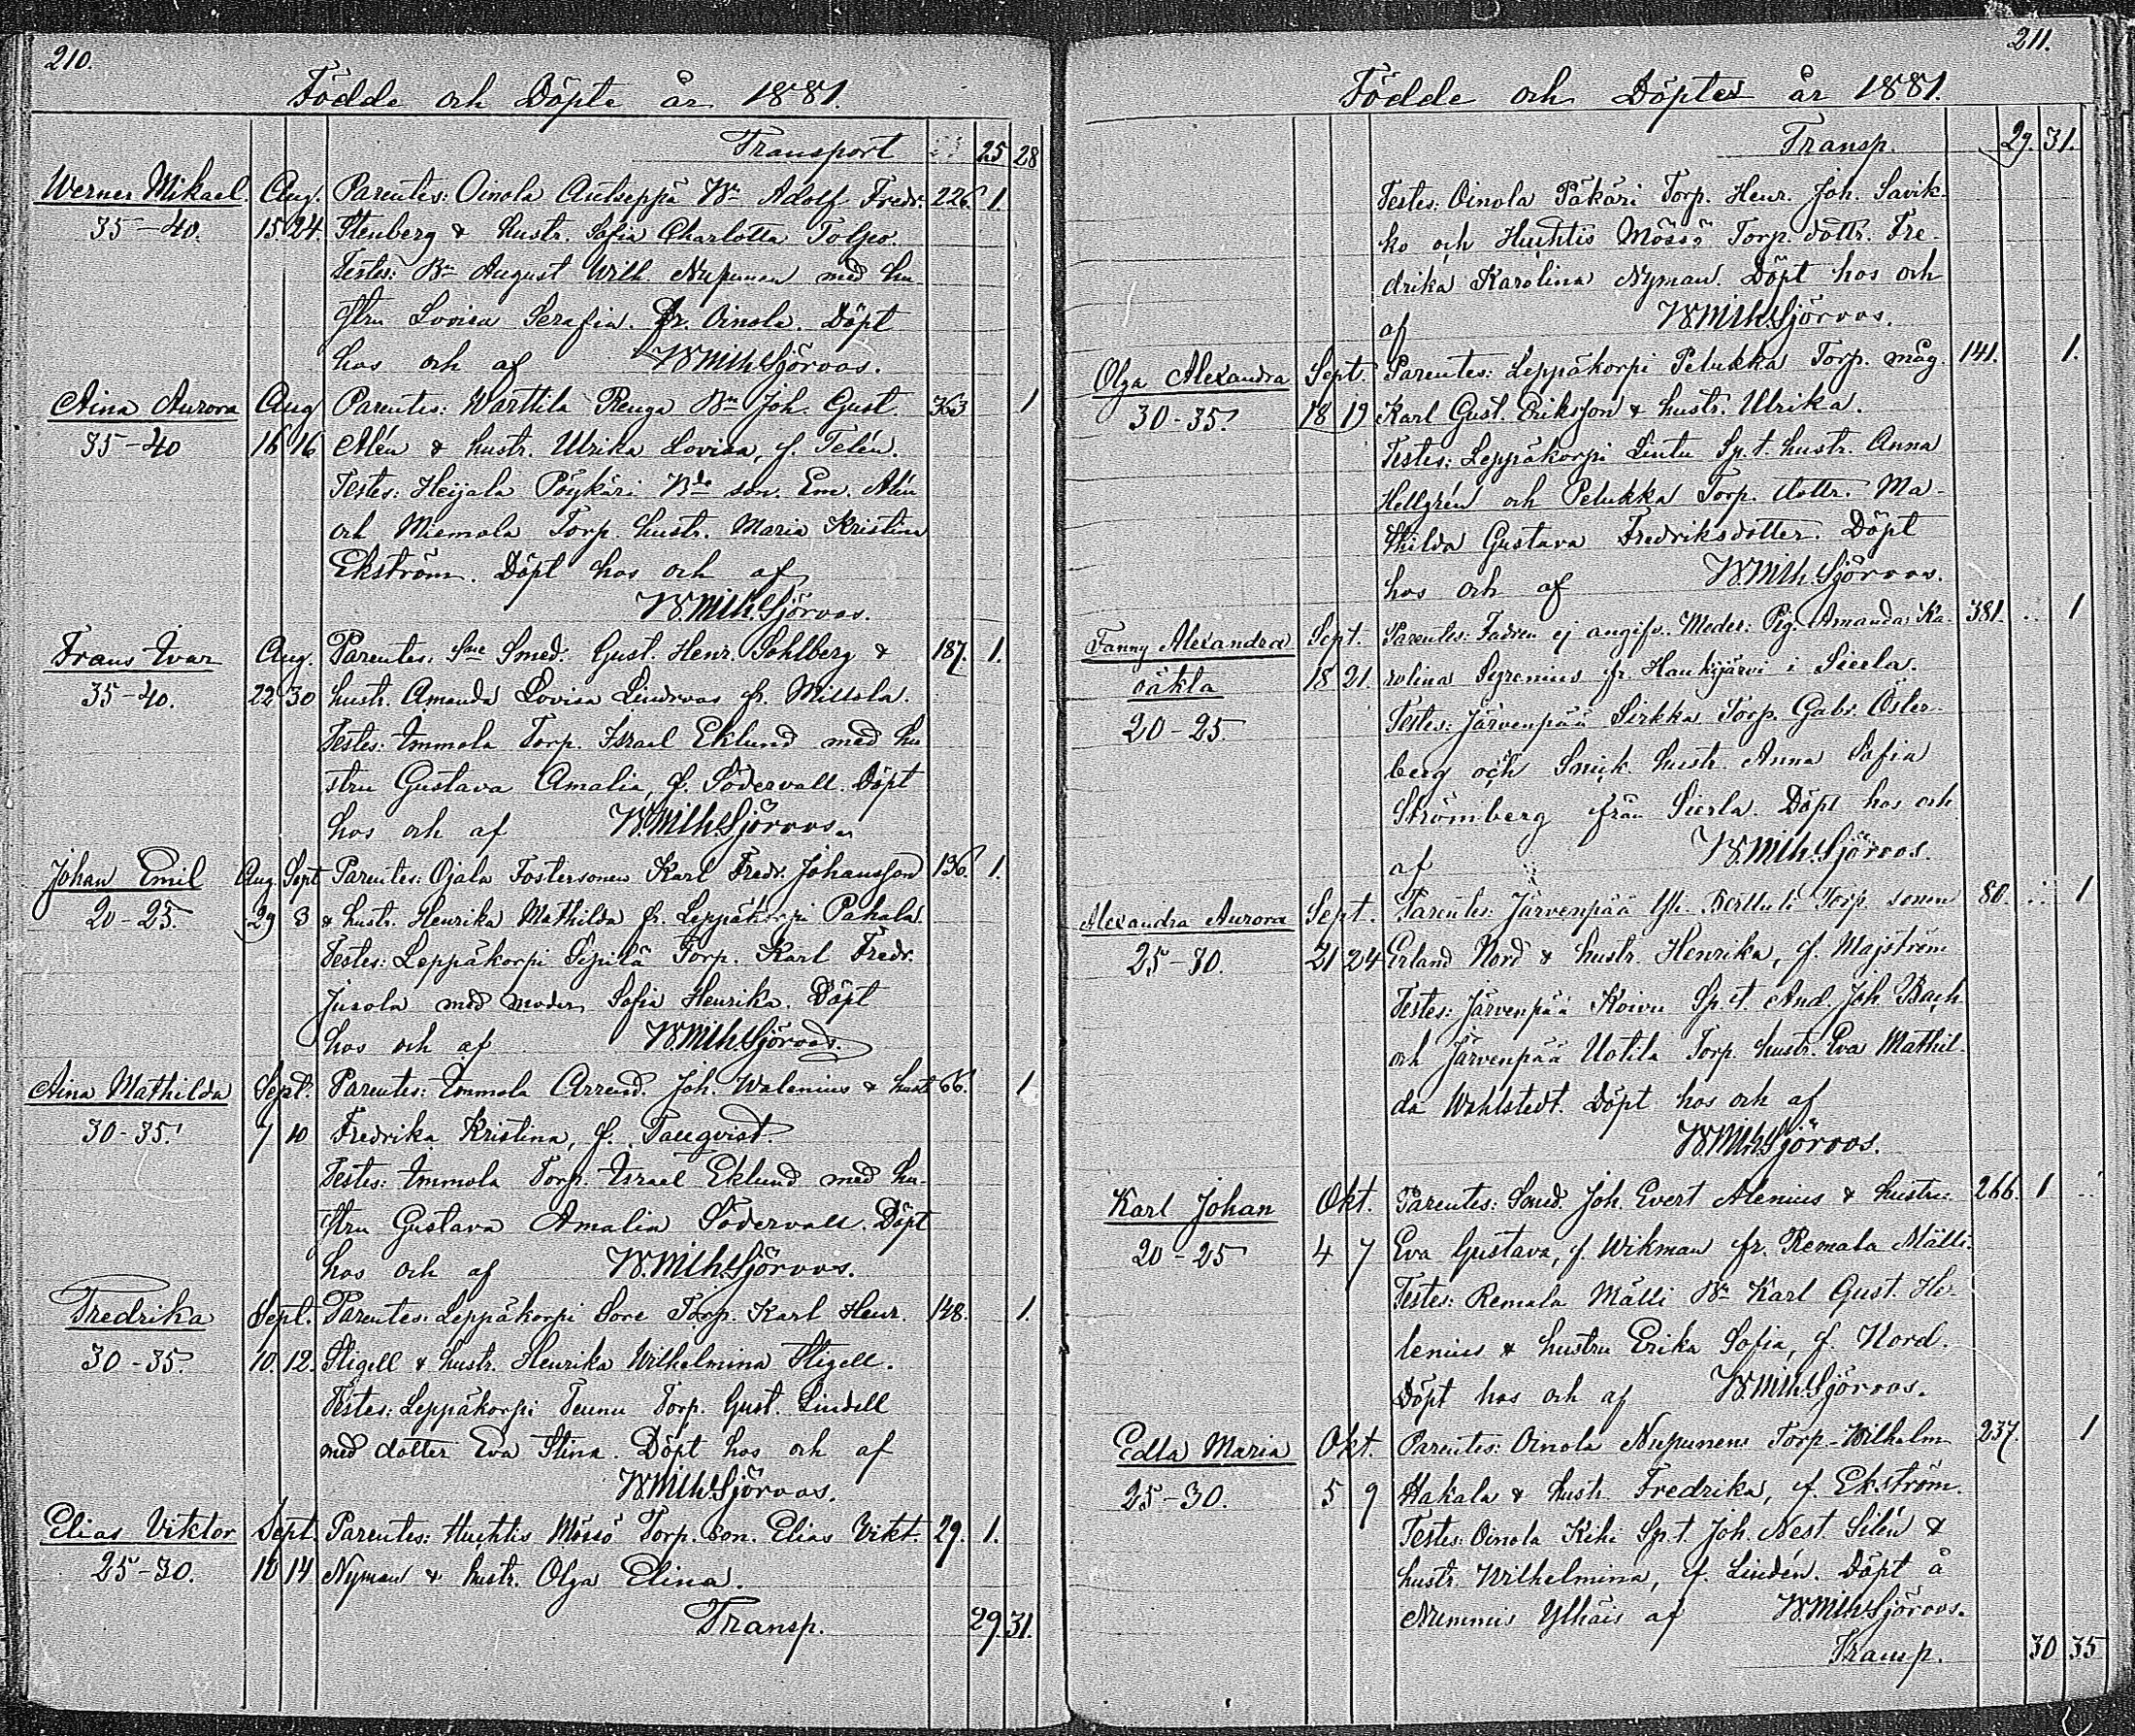 210.
Födde och Döpte år 1881.
Transport 25 28
Werner Mikael. Aug. Parentes: Oinola Anhseppä Bn Adolf Fredr. 226. 1.
35-40. 15 24. Stenberg & hustr. Sofia Charlotta Tolpo.
Testes: Bn August Wilh. Nupunen med hu-
stru Lovisa Serafia. fr. Oinola. Döpt
hos och af W.Mich.Sjöroos.
Aina Aurora Aug Parentes: Warttila Renga Bn Joh. Gust 363 1
35-40 16 16 Alén & hustr. Ulrika Lovisa, f. Telén.
Testes: Heijala Pöykäri Bde son. Em. Alén
och Miemola Torp. hustr. Maria Kristina
Ekström. Döpt hos och af
W.Mich.Sjöroos.
Frans Ivar Aug. Parentes: Sne Smed. Gust. Henr. Sohlberg & 187. 1.
35-40. 22 30 hustr. Amanda Lovisa Lindroos fr. Millola.
Testes: Immola Torp. Israel Eklund med hu
stru Gustava Amalia, f. Södervall. Döpt
hos och af W.Mich.Sjöroos.
Johan Emil Aug. Sept Parentes: Ojala Fostersonen Karl Fredr. Johansson 136. 1.
20-25. 29 3 & hustr. Henrika Mathilda fr. Leppäkorpi Pahala.
Testes: Leppäkorpi Sipilä Torp. Karl Fredr.
Jusola med moder Sofia Henrika. Döpt
hos och af W.Mich.Sjöroos.
Aina Mathilda Sept. Parentes: Immola Arrend. Joh. Walenius & hustr 66. 1
30-35. 7 10 Fredrika Kristina, f. Tallqvist.
Testes: Immola Torp. Israel Eklund med hu-
stru Gustava Amalia Södervall. Döpt
hos och af W.Mich.Sjöroos.
Fredrika Sept. Parentes: Leppäkorpi Sore Torp. Karl Henr. 148. 1.
30-35 10. 12. Stigell & hustr. Henrika Wilhelmina Stigell.
Testes: Leppäkorpi Teunu Torp. Gust. Lindell
med dotter Eva Stina. Döpt hos och af
W.Mich.Sjöroos.
Elias Viktor Sept. Parentes: Huhtis Mössö Torp. son. Elias Vikt. 29. 1.
25-30. 10 14 Nyman & hustr. Olga Elina.
Transp. 29. 31.
211.
Födde och Döptes år 1881.
Transp. 29. 31.
Testes: Oinola Päkäri Torp. Henr. Joh. Savik-
ko och Huhtis Mössö Torp. dottr. Fre-
drika Karolina Nyman. Döpt hos och
af W.Mich.Sjöroos.
Olga Alexandra Sept. Parentes: Leppäkorpi Pelukka Torp. måg. 141. 1.
30-35. 18 19 Karl Gust. Eriksson & hustr. Ulrika.
Testes: Leppäkorpi Lintu Sp.t. hustr. Anna
Hellgrén och Pelukka Torp. dottr. Ma-
thilda Gustava Fredriksdotter. Döpt
hos och af W.Mich.Sjöroos.
Fanny Alexandra Sept. Parentes: Fadren ej angifv. Moder: Pig. Amanda Ka- 381. .. 1
oäkta 18 21. rolina Syrenius fr. Haukijärvi i Sierla.
20-25. Testes: Järvenpää Sirkka Torp. Gabr. Öster-
berg och Snick. hustr. Anna Sofia
Strömberg från Sierla. Döpt hos och
af W.Mich.Sjöroos.
Alexandra Aurora Sept. Parentes: Järvenpää Yli Berttuli Torp. sonen 80. .. 1
25-30. 21 24 Erland Nord & hustr. Henrika, f. Majström
Testes: Järvenpää Koivu Sp.t. And. Joh. Bach
och Järvenpää Uotila Torp. hustr. Eva Mathil-
da Wahlstedt. Döpt hos och af
W.Mich.Sjöroos.
Karl Johan Okt. Parentes: Smed. Joh. Evert Alenius & hustru 266. 1 ..
20-25 4 7 Eva Gustava, f. Wikman fr. Remala Mälli.
Testes: Remala Mälli Bn Karl Gust. He-
lenius & hustru Erika Sofia, f. Nord.
Döpt hos och af W.Mich.Sjöroos.
Edla Maria Okt. Parentes: Oinola Nupunens Torp. Wilhelm 237. 1
25-30. 5 9 Hakala & hustr. Fredrika, f. Ekström.
Testes: Oinola Kihi Sp.t. Joh. Nest. Silén &
hustr. Wilhelmina, f. Lindén. Döpt å
Nummis Ylhäis af W.Mich.Sjöroos.
Transp. 30 35